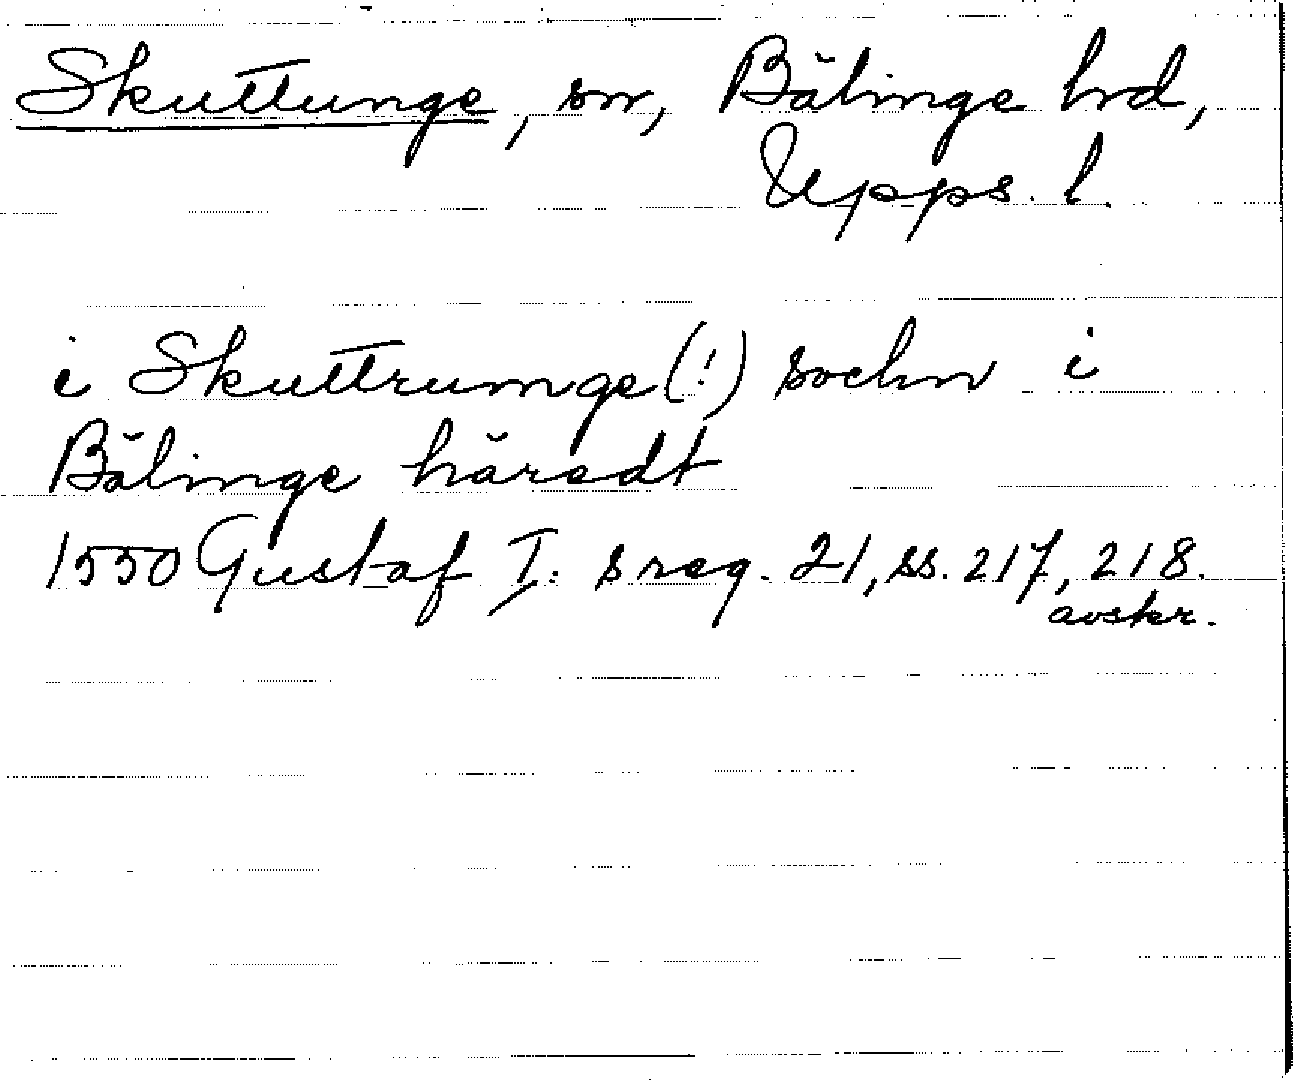 Skuttunge, sn, Bälinge hrd,
Upps. l.
i Skuttrunge (!) sochn i
Bälinge häredt
1550 Gustaf I:s reg. 21, ss. 217, 218.
avskr.